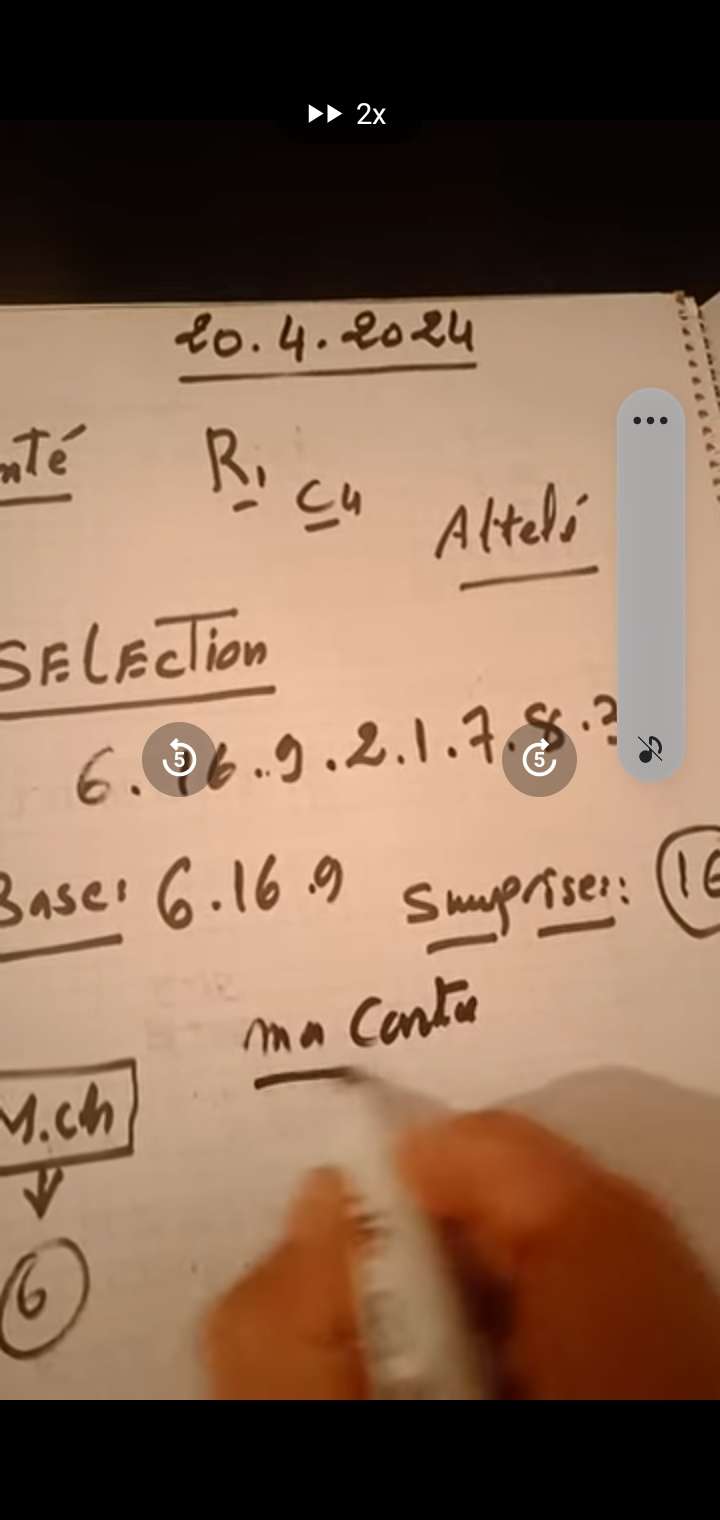 2x
20.4.2024
nté R1 C4 Attelé
SELECTion
6.16.9.2.1.7.8.3
5 5
Base: 6.16.9 Surprise: 16
ma Carte
M.ch
6